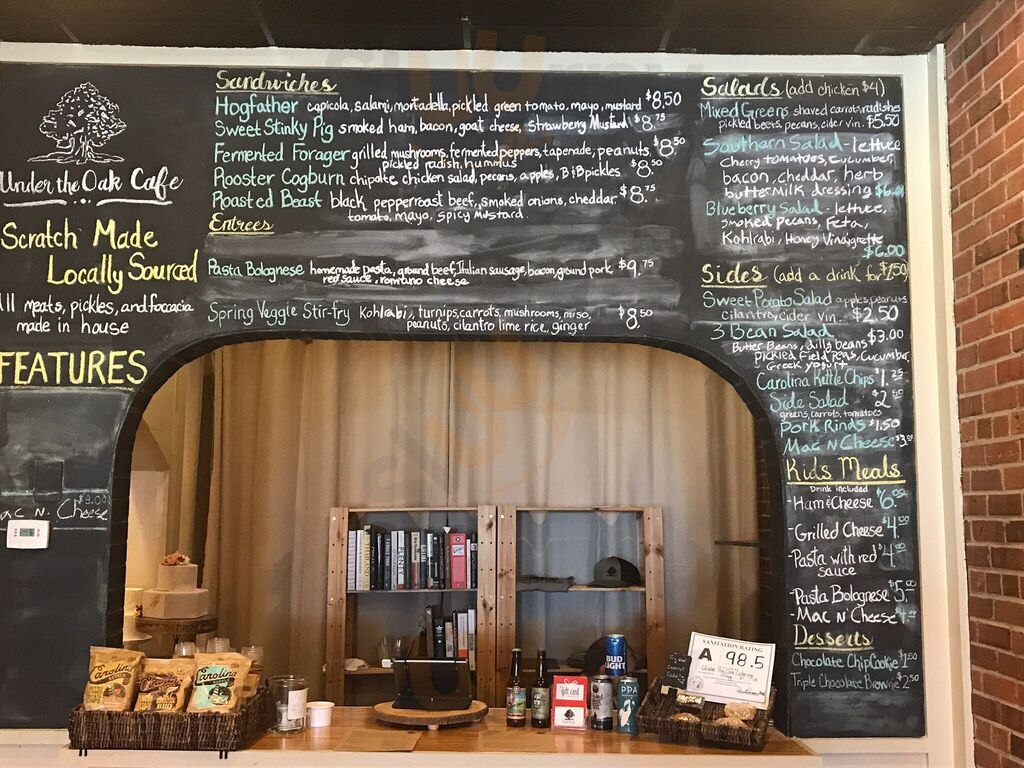 Under the Oak Cafe
Scratch Made
Locally Sourced
All meats, pickles, and foccacia
made in house
FEATURES
$3.00
Mac N. Cheese
Sandwiches
Hogfather capicola, salami, mortadella, pickled green tomato, mayo, mustard $8.50
Sweet Stinky Pig smoked ham, bacon, goat cheese, strawberry Mustard $8.75
Fermented Forager grilled mushrooms, fermented peppers, tapenade, peanuts $8.50
pickled radish, hummus
Rooster Cogburn chipotle chicken salad, pecans, apples, B&B pickles $8.50
Roasted Beast black pepper roast beef, smoked onions, cheddar, $8.75
tomato, mayo, spicy Mustard
Entrees
Pasta Bolognese homemade pasta, ground beef, Italian sausage, bacon, ground pork $9.75
red sauce, romano cheese
Spring Veggie Stir-fry Kohlrabi, turnips, carrots, mushrooms, miso, $8.50
peanuts, cilantro lime rice, ginger
Salads (add chicken $4)
Mixed Greens shaved carrots, radishes
pickled beets, pecans, cider vin. $5.50
Southern Salad - lettuce
Cherry tomatoes, cucumber,
bacon, cheddar, herb
buttermilk dressing $6.00
Blueberry Salad - lettuce,
Smoked pecans, Feta,
Kohlrabi, Honey Vinaigrette
$6.00
Sides (add a drink for $1.50)
Sweet Potato Salad apples, peanuts
cilantro, cider vin. $2.50
3 Bean Salad $3.00
Butter Beans, dilly beans
pickled Field Peas, Cucumber,
Greek yogurt
Carolina Kettle Chips $1.25
Side Salad $2.00
greens, carrots, tomatoes
Pork Rinds $1.50
Mac N Cheese $3.00
Kids Meals
Drink included
- Ham & Cheese $6.00
- Grilled Cheese $4.50
- Pasta with red $4.00
sauce
- Pasta Bolognese $5.00
- Mac N' Cheese
Desserts
Chocolate Chip Cookie $1.50
Triple Chocolate Brownie $2.50
Carolina
Carolina
Carolina
gift card
BUD
LIGHT
PPA
SANITATION RATING
A 98.5